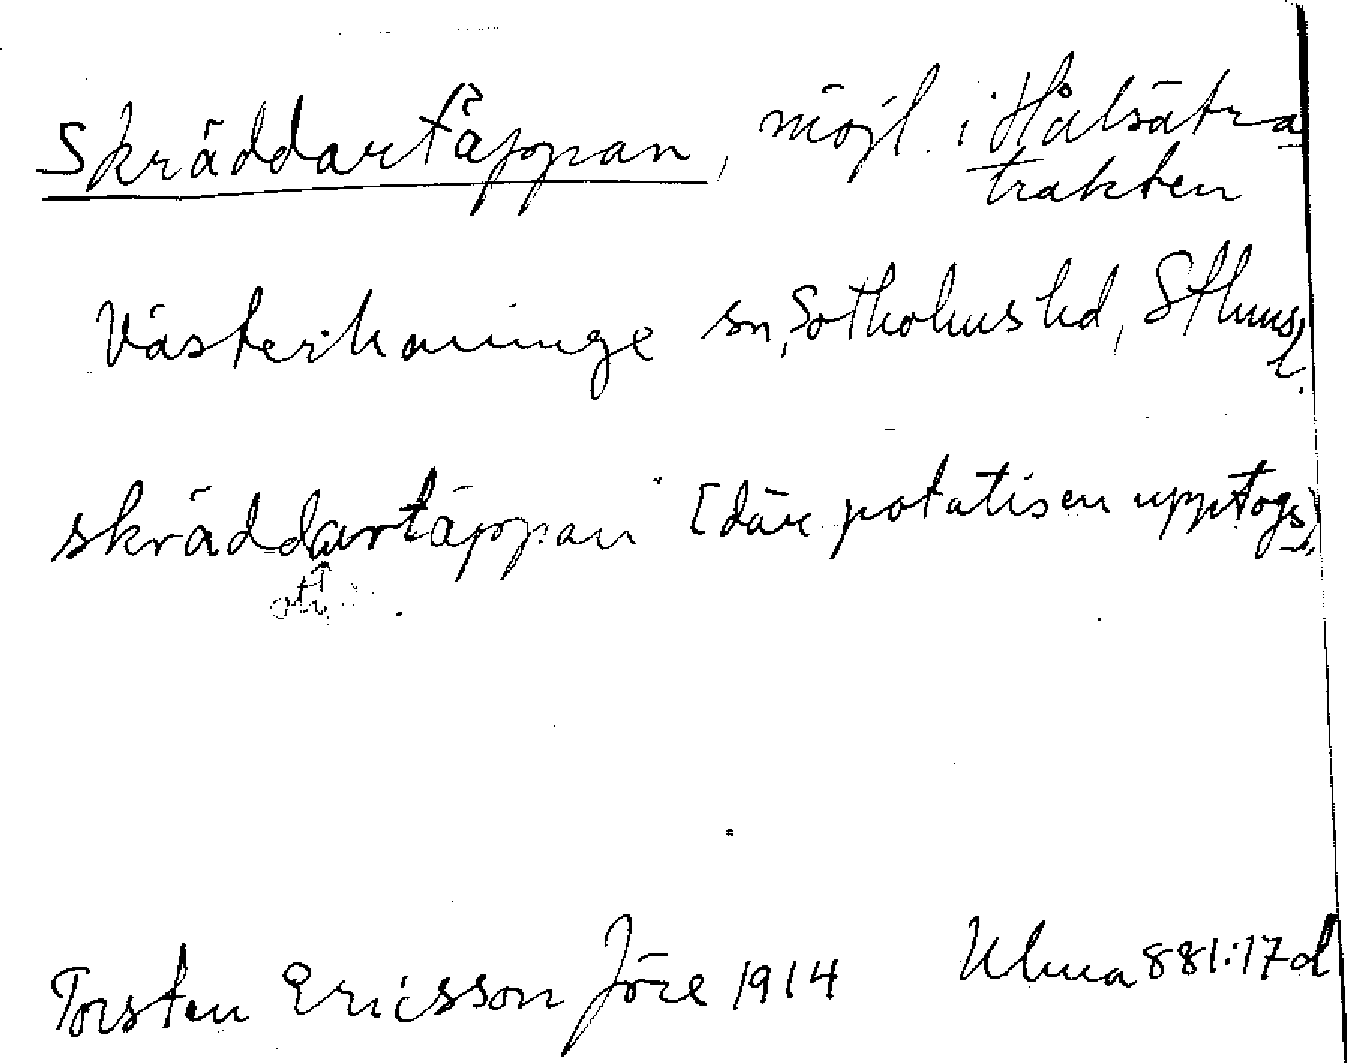 Skräddartäppan, möjl. i Hålsätra
trakten
Västerhaninge sn, Sotholms hd, Sthms
l.
skräddartäppan [där potatisen upptogs]
otr.
Torsten Ericsson Jöre 1914 Ulma 881:17d